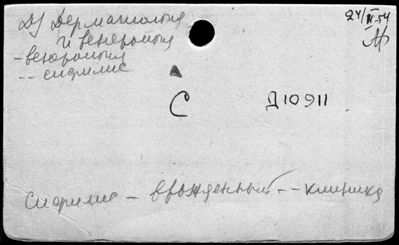 Дерматология
и венерология
- венерология
-- сифилис
24/III 54
С
Д10911
Сифилис - врожденный -- клиника